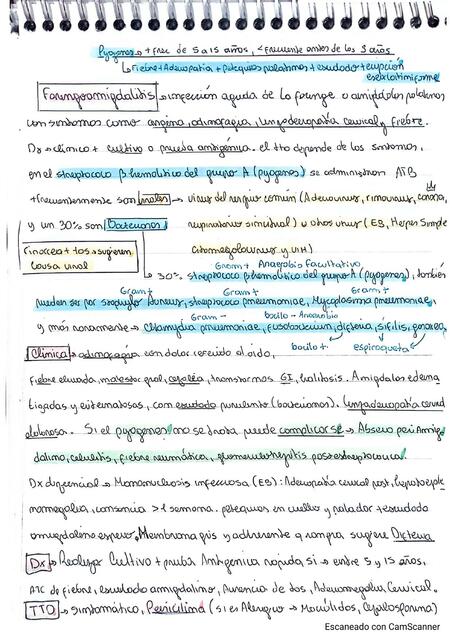 Pyogenes → + frec de 5 a 15 años, < frecuente antes de los 3 años
↳ Fiebre + Adenopatia + petequias palatinas + exudado + erupción
escarlatiniforme
Faringoamigdalitis → infección aguda de la faringe o amigdalas palatinas
con sintomas como angina, odinofagia, linfadenopatia cervical y fiebre.
Dx → clinico + cultivo o prueba antigenica. el tto depende de los sintomas,
en el streptococo β hemolitico del grupo A (pyogenes) se administran ATB
+ frecuentemente son virales → virus del resfrio común (Adenovirus, rinovirus, corona,
y un 30% son bacterianos respiratorio sincitial) u otros virus (EB, Herpes Simple
Rinorrea + tos → sugieren citomegalovirus y VIH)
causa viral
Gram + Anaerobio facultativo
→ 30% streptococo β hemolitico del grupo A (pyogenes), también
Gram + Gram + Gram +
pueden ser por Aureus, streptococo pneumoniae, Mycoplasma pneumoniae,
Gram - bacilo - Anaerobio
y más raramente → chlamydia pneumoniae, fusobacterium, difteria, sifilis, gonorrea,
bacilo + espiroqueta
Clinica → odinofagia con dolor referido al oido,
fiebre elevada, malestar gral, cefalea, transtornos GI, halitosis. Amigdalas edema
tizadas y eritematosas, con exudado purulento (bacterianos). Linfadenopatia cervical
dolorosa. Si el pyogenes no se trata puede complicarse → Absceso peri Amig
dalino, celulitis, fiebre reumática, glomerulonefritis postestreptococica.
Dx diferencial → Mononucleosis infecciosa (EB): Adenopatia cervical post, hepatoesple
nomegalia, cansancio > 1 semana. petequias en cuello y paladar + exudado
amigdalino espeso. Membrana gris y adherente q rompe sugiere Difteria
Dx → Realizar Cultivo + prueba Antigenica rapida si → entre 5 y 15 años,
ATC de fiebre, exudado amigdalino, Ausencia de tos, Adenomegalia Cervical.
TTO → sintomático, Penicilina (si es Alergico → Macrolidos, Cefalosporina)
Escaneado con CamScanner